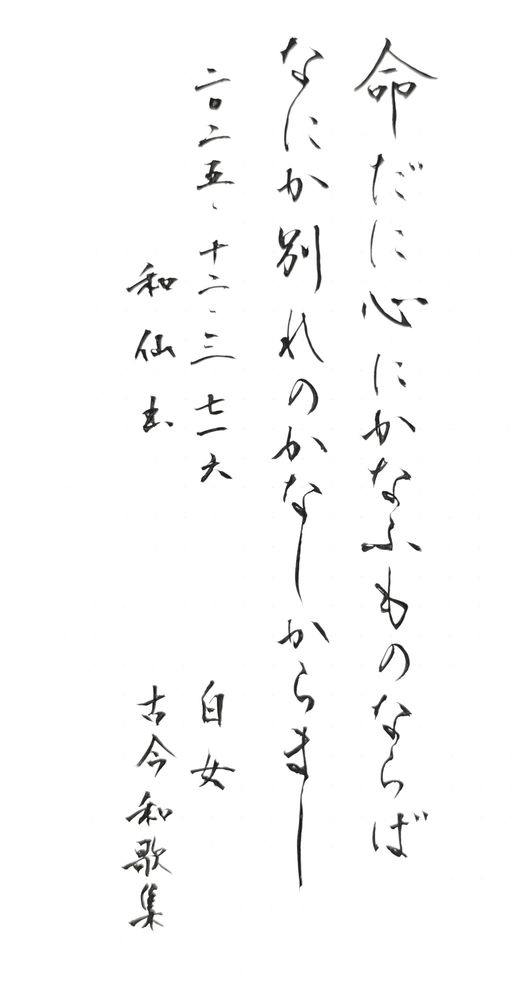 命だに心にかなふものならば
なにか別れのかなしからまし
二〇二五、十二、三 七一六
白女
和仙書
古今和歌集